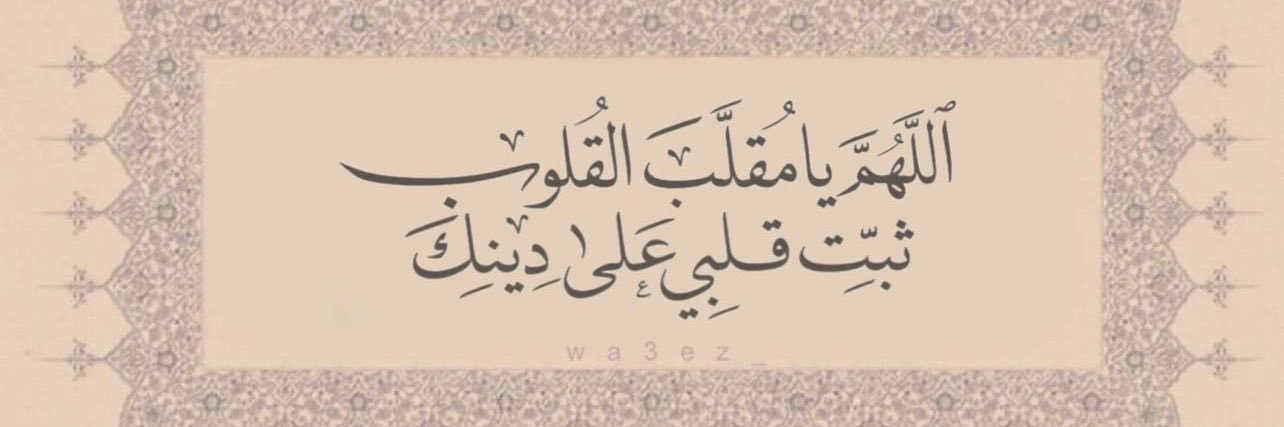 ٱللَّهُمَّ يا مُقلَّبَ القُلوب
ثبّتِ قلبِي عَلىٰ دِينِكَ
_wa3ez_